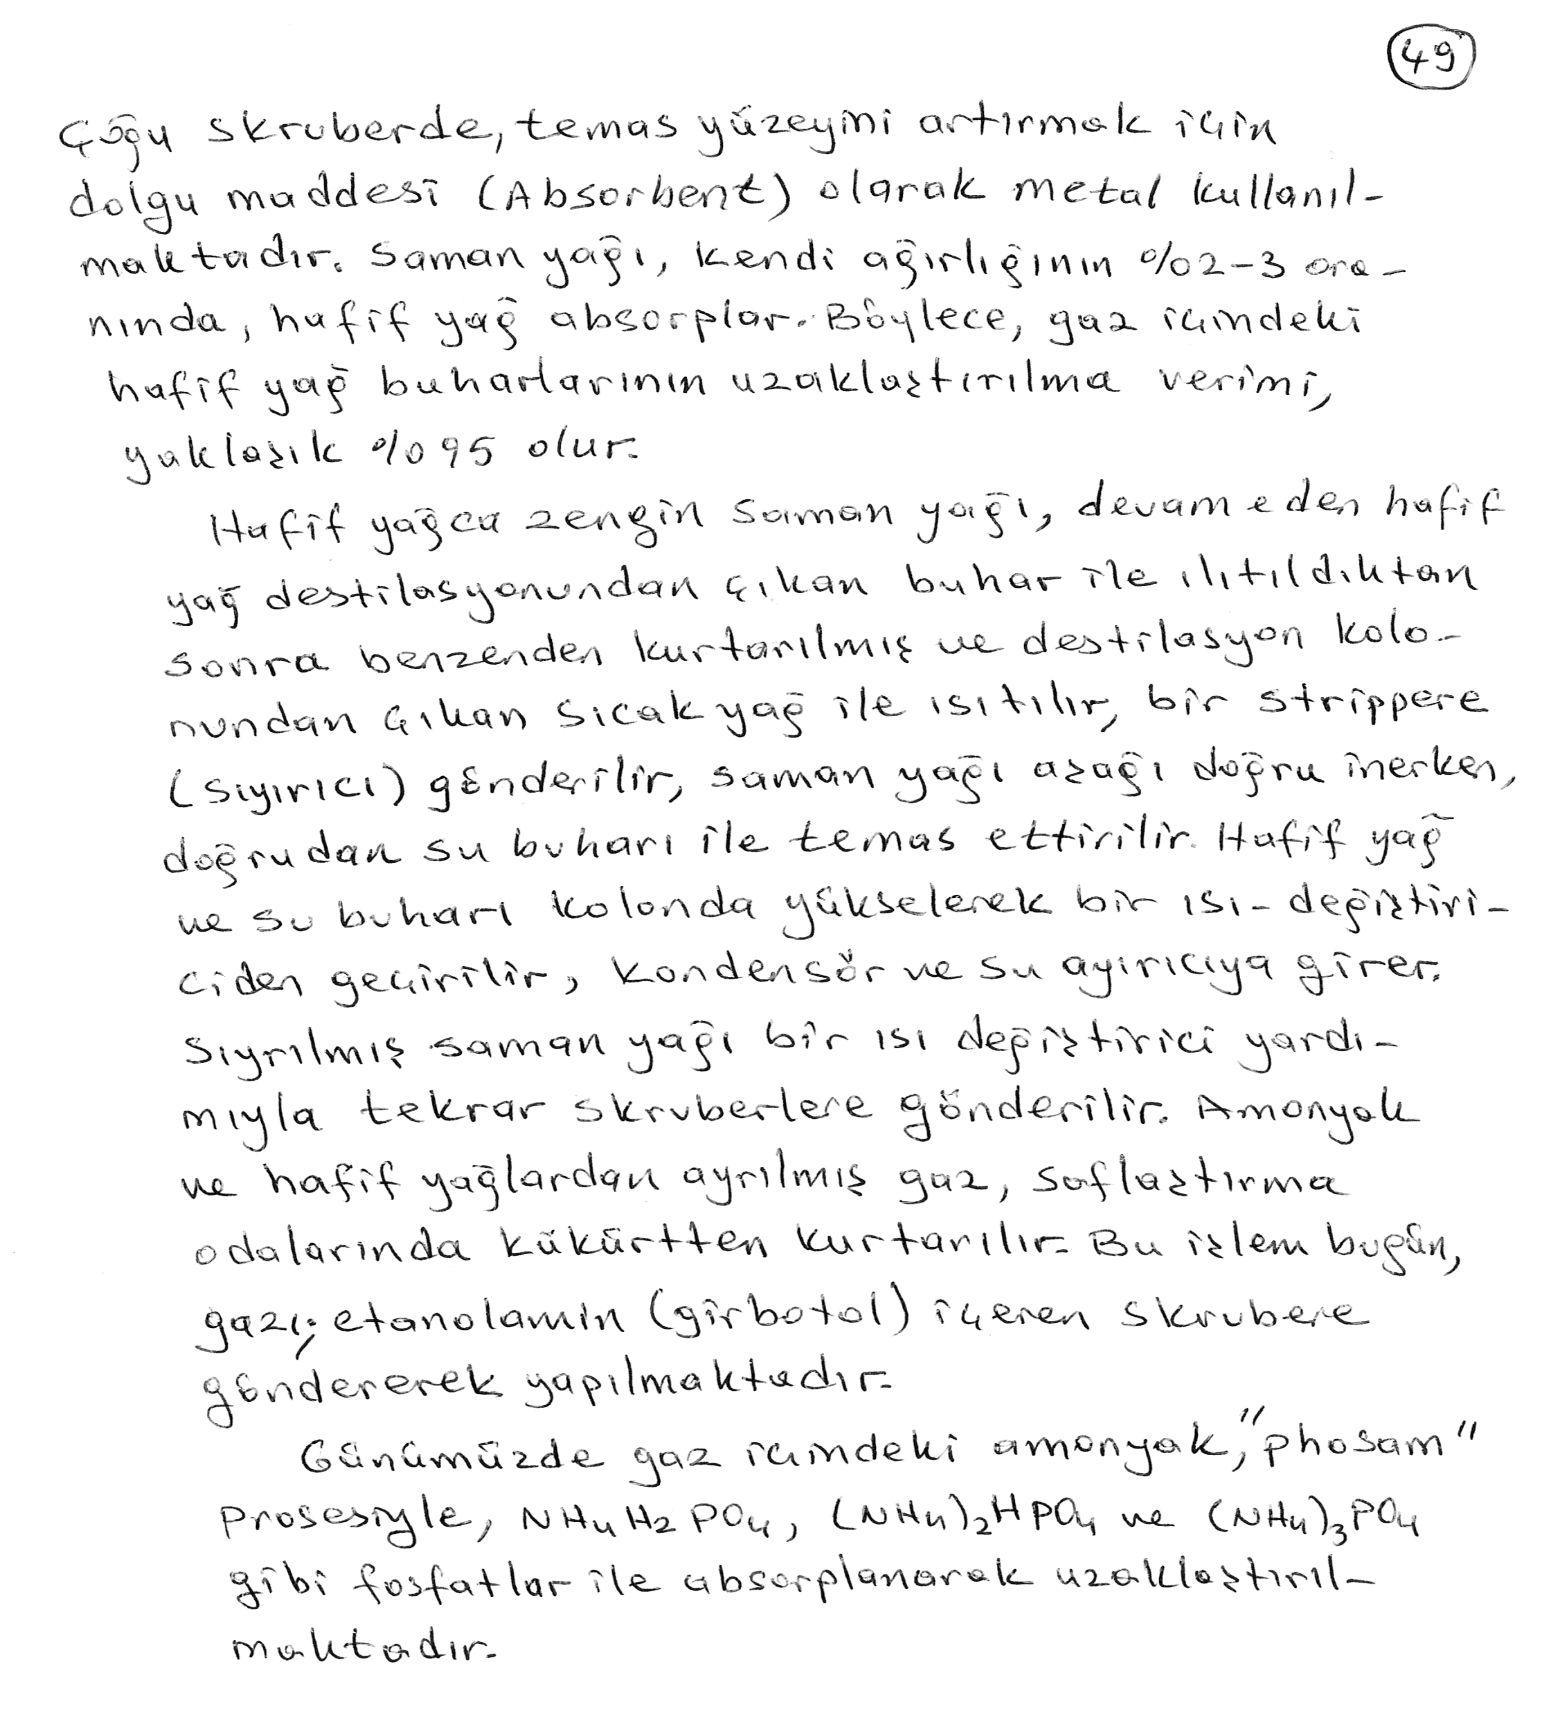 49
Çoğu skruberde, temas yüzeyini artırmak için
dolgu maddesi (Absorbent) olarak metal kullanıl-
maktadır. Saman yağı, kendi ağırlığının %2-3 ora-
nında, hafif yağ absorplar. Böylece, gaz içindeki
hafif yağ buharlarının uzaklaştırılma verimi,
yaklaşık %95 olur.
Hafif yağca zengin saman yağı, devam eden hafif
yağ destilasyonundan çıkan buhar ile ılıtıldıktan
sonra benzenden kurtarılmış ve destilasyon kolo-
nundan çıkan sıcak yağ ile ısıtılır, bir strippere
(sıyırıcı) gönderilir, saman yağı aşağı doğru inerken,
doğrudan su buharı ile temas ettirilir. Hafif yağ
ve su buharı kolonda yükselerek bir ısı-değiştiri-
ciden geçirilir, kondensör ve su ayırıcıya girer.
Sıyrılmış saman yağı bir ısı değiştirici yardı-
mıyla tekrar skruberlere gönderilir. Amonyak
ve hafif yağlardan ayrılmış gaz, saflaştırma
odalarında kükürtten kurtarılır. Bu işlem bugün,
gazı; etanolamin (girbotol) içeren skrubere
göndererek yapılmaktadır.
Günümüzde gaz içindeki amonyak, "phosam"
prosesiyle, NH₄H₂PO₄, (NH₄)₂HPO₄ ve (NH₄)₃PO₄
gibi fosfatlar ile absorplanarak uzaklaştırıl-
maktadır.